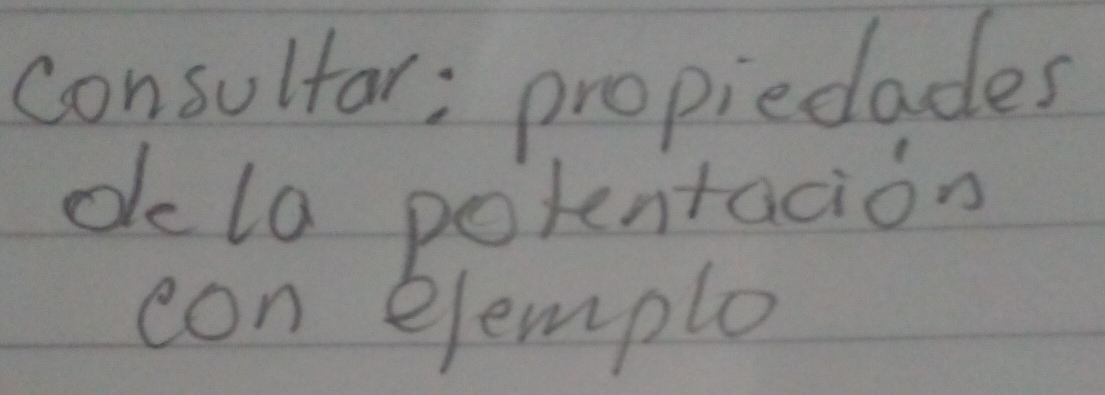 consultar: propiedades
de la potentación
con ejemplo